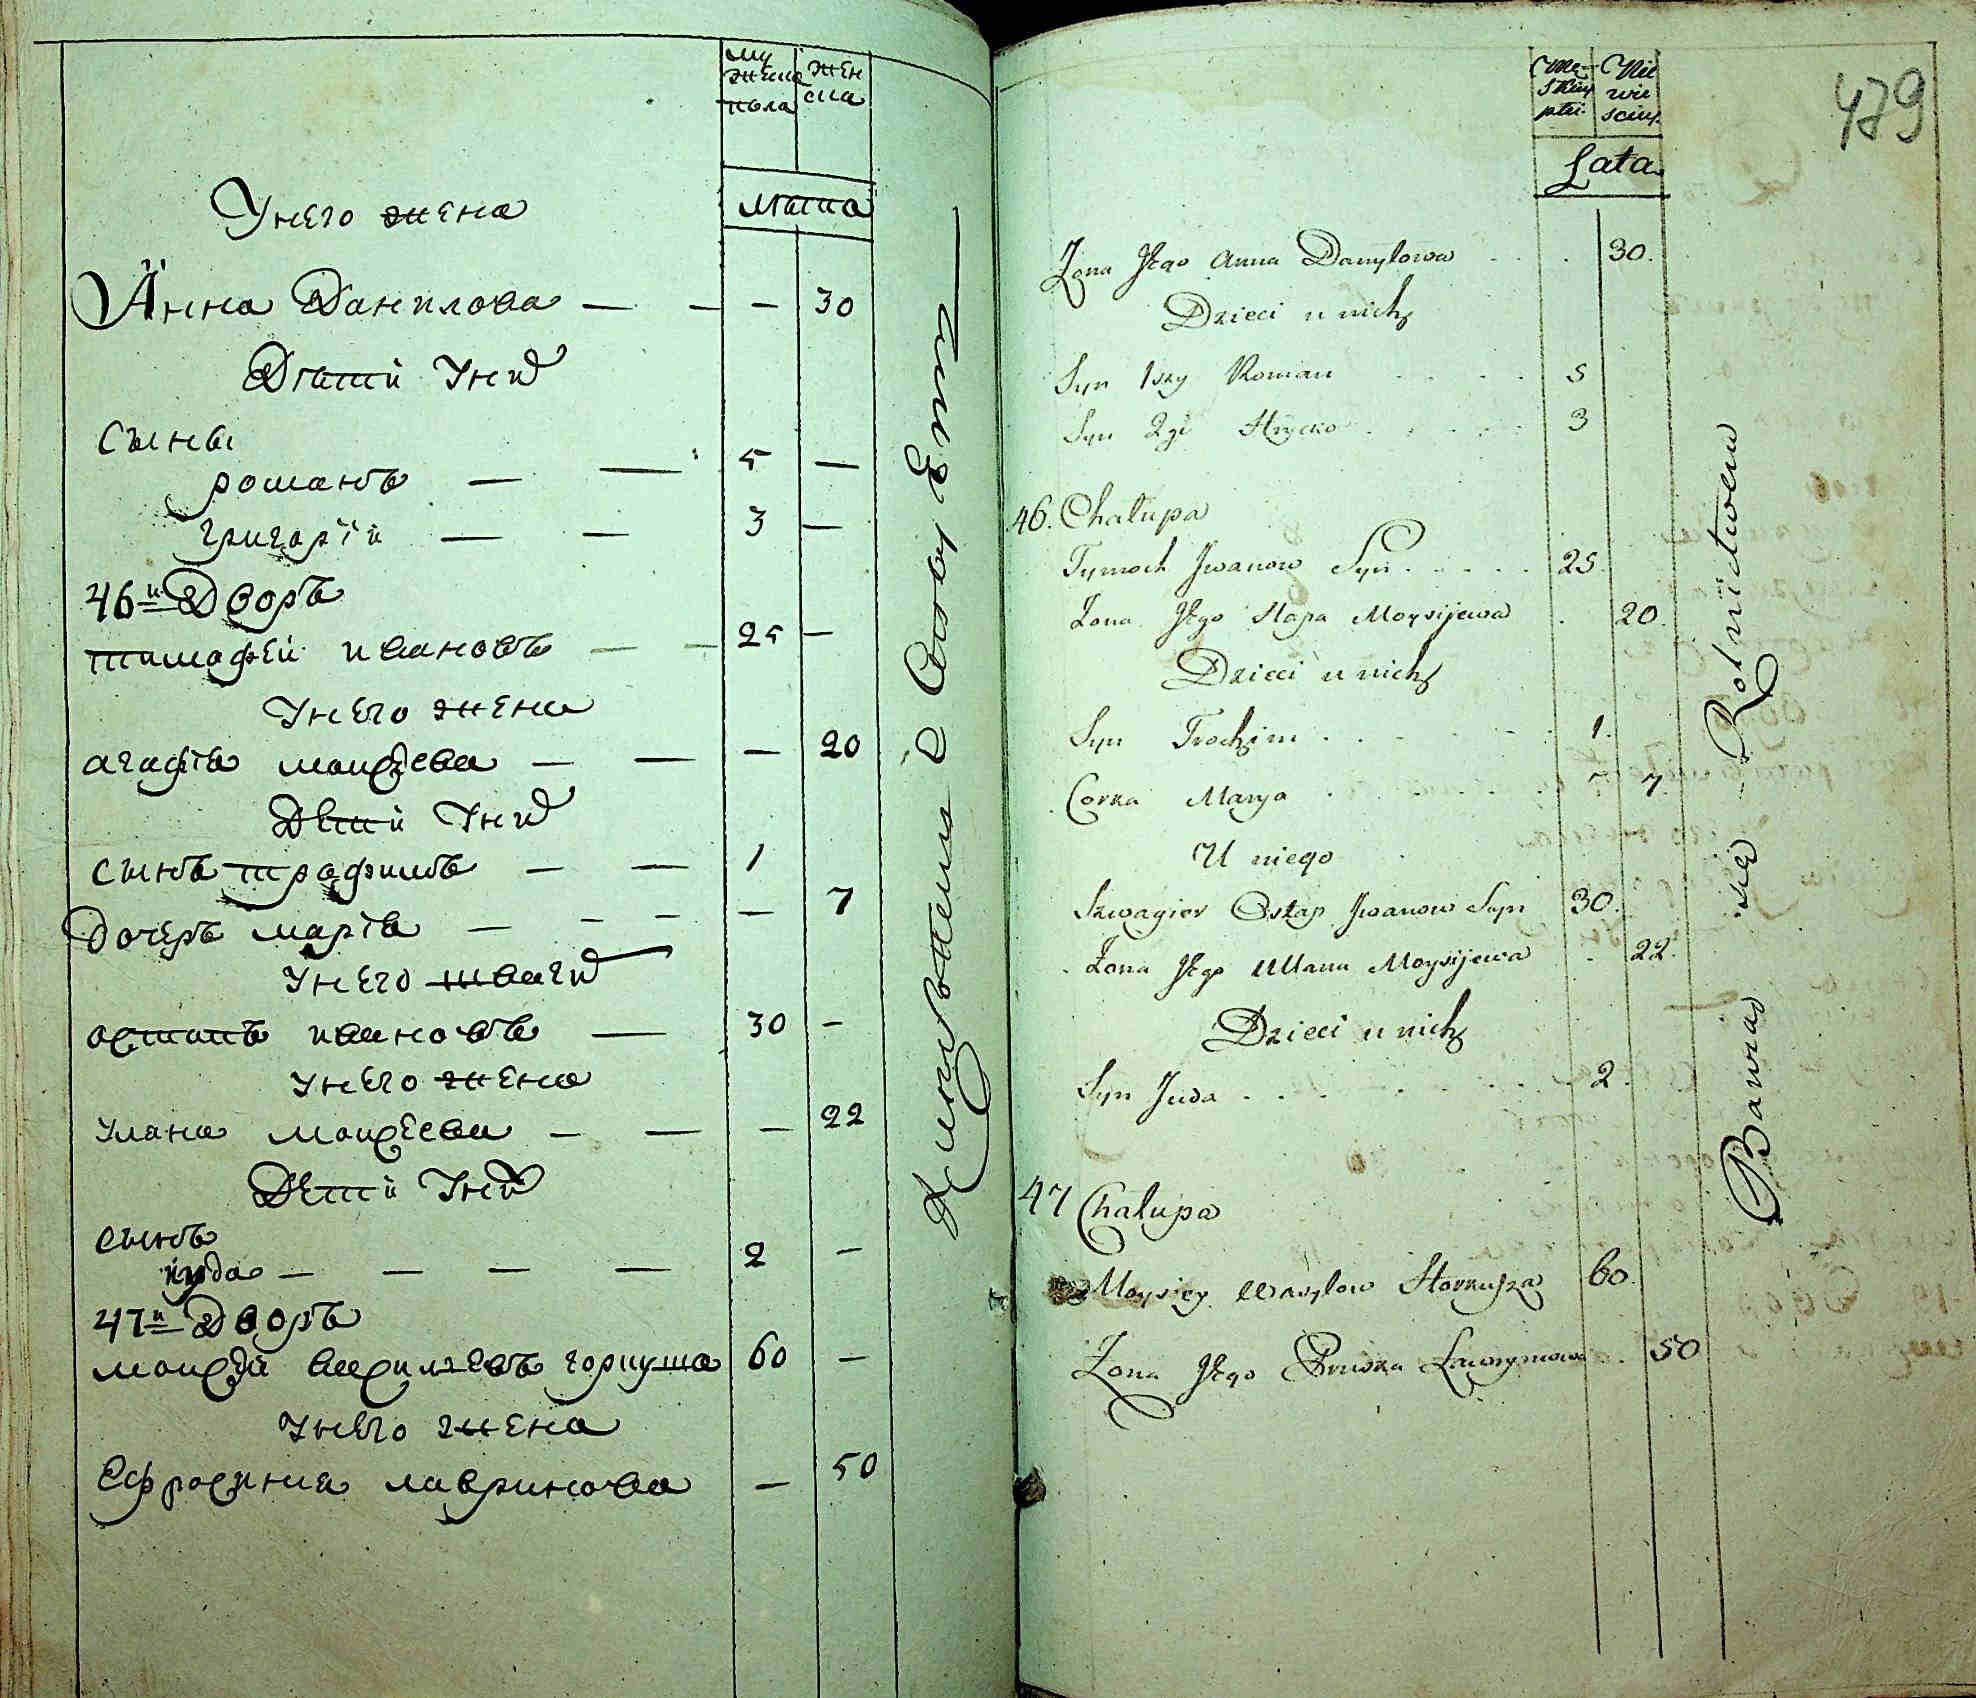 му
жеска
пола
жен
ска
лѣта
У него жена
Анна Данилова — — — 30
Дѣти У них
Сыны
романъ — — 5 —
григорій — — 3 —
46й Дворъ
тимофей ивановъ — — 25 —
У него жена
агафія мойсеева — — — 20
Дети У них
сынъ трофимъ — — 1
дочеръ марія — — — — 7
У него шваги
остапъ ивановъ — 30 —
У него жена
уляна мойсеева — — — 22
Дети У них
сынъ
июда — — — — 2 —
47й Дворъ
мойсей василіевъ горкуша 60 —
У него жена
Ефросиния лавринова — 50
479
Mę-
skiey
płci
Nie
wie
sciey
Lata
Żona Jego Anna Danyłowa . . . 30.
Dzieci u nich
Syn 1szy Roman . . . . 5
Syn 2gi Hrycko . . . . . 3
46. Chałupa
Tymoch Jwanow Syn . . . . . 25.
Żona Jego Hapa Moysijewa . 20.
Dzieci u nich
Syn Trochim . . . . . . . 1.
Corka Marya . . . . . . . 7
U niego
Szwagier Ostap Jwanow Syn 30.
Żona Jego Ullana Moysijewa . 22.
Dzieci u nich
Syn Juda . . . . . . . . 2.
47 Chałupa
Moysiey Wasylow Horkusza 60.
Żona Jego Pruska Ławrynowa . . 50
Bawią się Rolnictwem